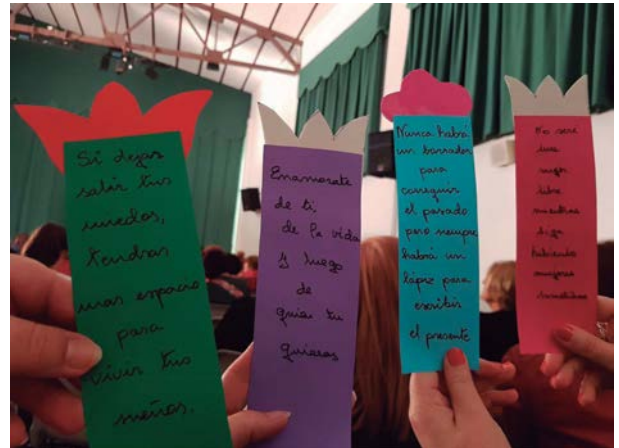 Si dejas
salir tus
miedos,
tendras
mas espacio
para
vivir tus
sueños.
Enamorate
de ti,
de la vida
y luego
de
quien tu
quieras
Nunca habrá
un borrador
para
conseguir
el pasado
pero siempre
habrá un
lápiz para
escribir
el presente
No seré
una
mujer
libre
mientras
siga
habiendo
mujeres
sometidas